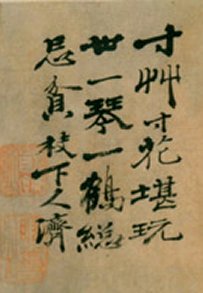 寸艸寸花堪玩
世一琴一鶴總
忌貧枝下人濟